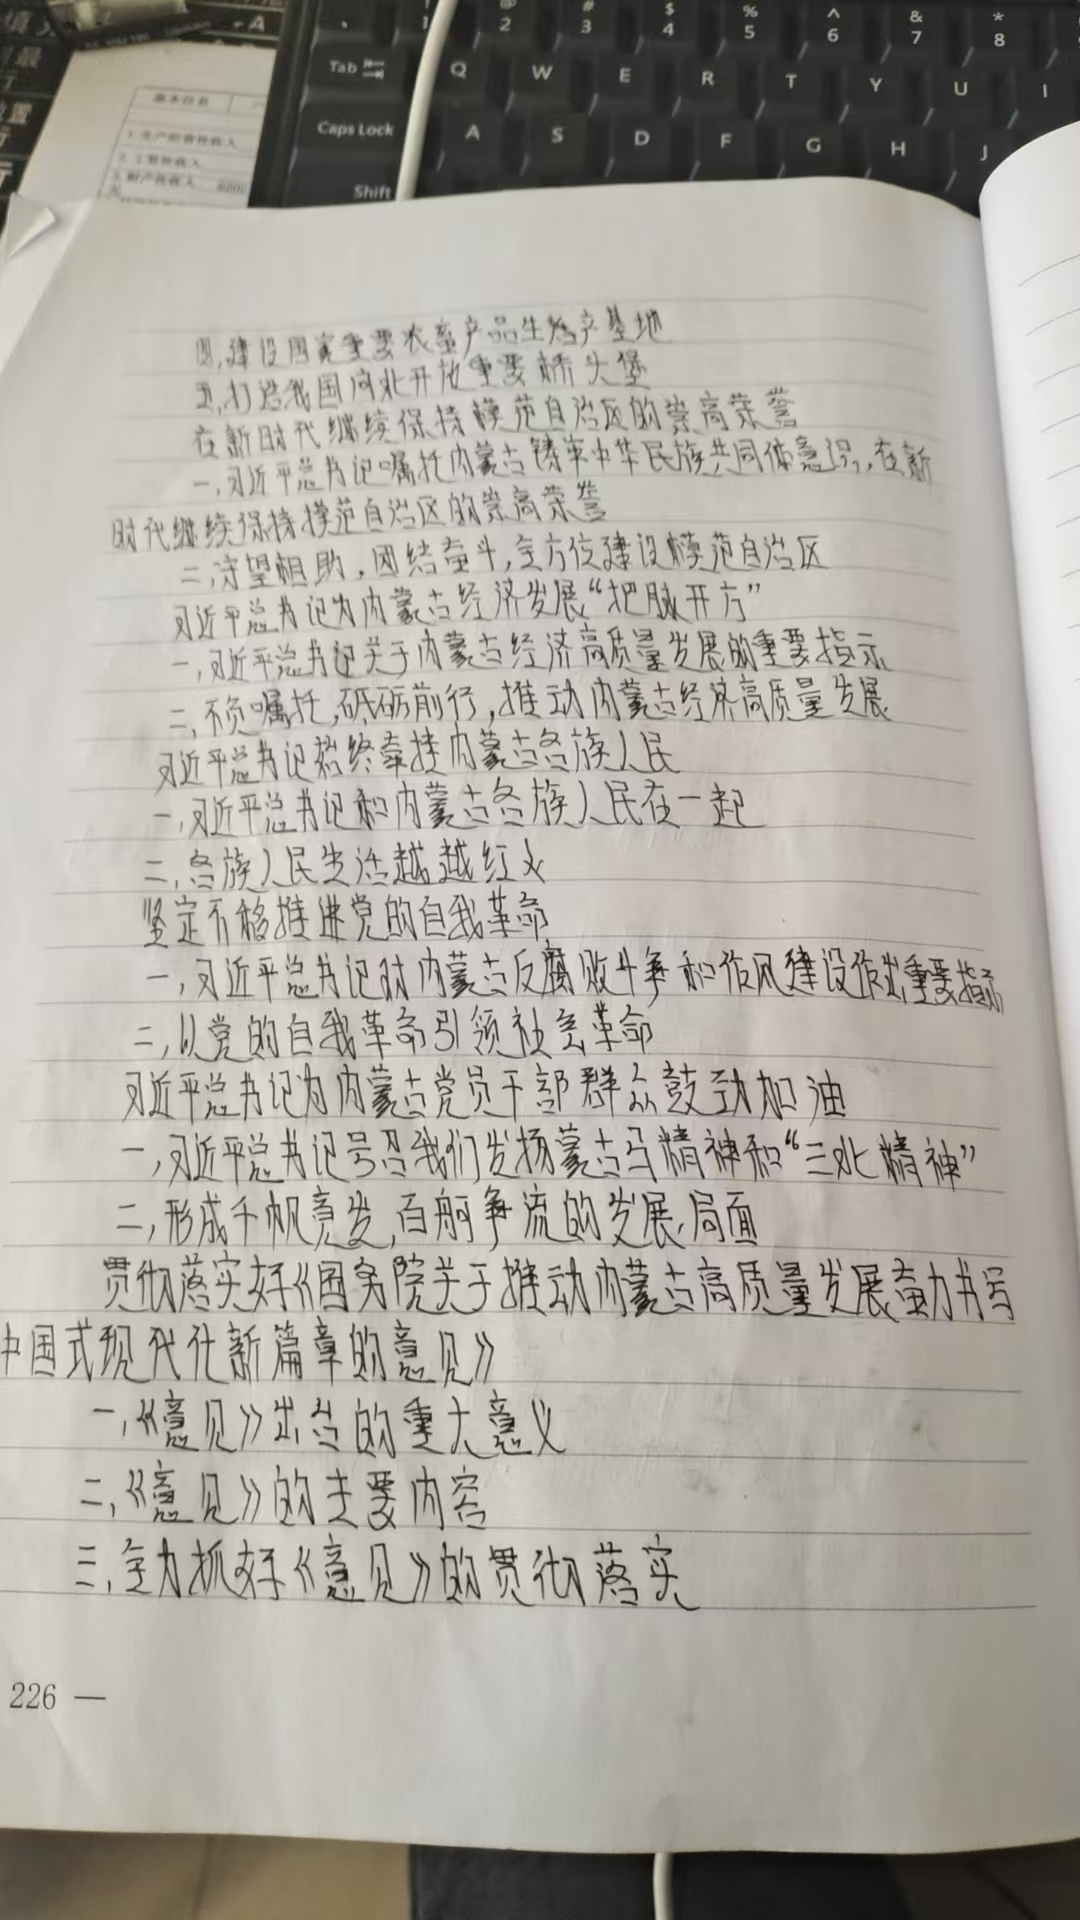 填入
+A
最
行
置
行
行
@
2
#
3
$
4
%
5
^
6
&
7
*
8
Tab
Q W E R T Y U I
Caps Lock
A S D F G H J
Shift
基本信息
1.生产经营性收入
2.工资性收入
3.财产性收入
四,建设国家重要农畜产品生产基地
五,打造我国向北开放重要桥头堡
在新时代继续保持模范自治区的崇高荣誉
一,习近平总书记嘱托内蒙古铸牢中华民族共同体意识,在新
时代继续保持模范自治区的崇高荣誉
二,守望相助,团结奋斗,全方位建设模范自治区
习近平总书记为内蒙古经济发展“把脉开方”
一,习近平总书记关于内蒙古经济高质量发展的重要指示
二,不负嘱托,砥砺前行,推动内蒙古经济高质量发展
习近平总书记始终牵挂内蒙古各族人民
一,习近平总书记和内蒙古各族人民在一起
二,各族人民生活越越红火
坚定不移推进党的自我革命
一,习近平总书记对内蒙古反腐败斗争和作风建设作出重要指示
二,以党的自我革命引领社会革命
习近平总书记为内蒙古党员干部群众鼓劲加油
一,习近平总书记号召我们发扬蒙古马精神和“三北精神”
二,形成千帆竞发,百舸争流的发展局面
贯彻落实好《国务院关于推动内蒙古高质量发展奋力书写
中国式现代化新篇章的意见》
一,《意见》出台的重大意义
二,《意见》的主要内容
三,全力抓好《意见》的贯彻落实
226 —